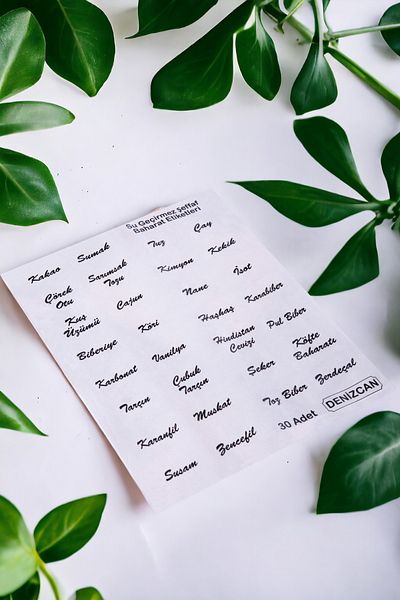 Su Geçirmez Şeffaf
Baharat Etiketleri
Kakao Sumak Tuz Çay
Çörek
Otu
Sarımsak
Tozu
Kimyon Kekik
Kuş
Üzümü
Cajun Nane İsot
Biberiye Köri Haşhaş Karabiber
Karbonat Vanilya
Hindistan
Cevizi
Pul Biber
Tarçın
Çubuk
Tarçın
Şeker
Köfte
Baharatı
Karanfil Muskat Toz Biber Zerdeçal
Susam Zencefil 30 Adet DENİZCAN